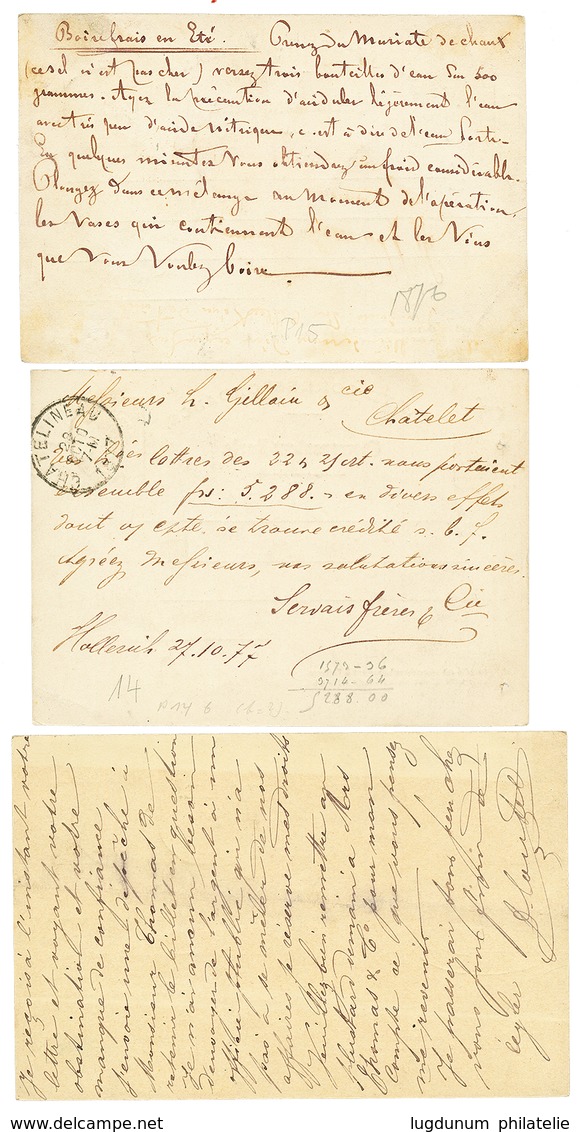 Boire frais en Eté. Prenez du Muriate de chaux
(ce sel n'est pas cher) versez trois bouteilles d'eau sur 500
grammes. Ayez la précaution d'aciduler légèrement l'eau
avec très peu d'acide nitrique, c'est à dire de l'eau forte.
En quelques minutes vous obtiendrez un froid considérable.
Plongez dans ce mélange au moment de l'opération,
les Vases qui contiennent l'eau et les Vins
que Vous Voulez boire
P15
Messieurs h. Gillain & cie
Châtelet
CHATELINEAU
lettres des 22 & 25 crt. nous portaient
ensemble frs: 5.288.- en divers effets
dont v/ cpte. se trouve crédité s. b. f.
Agréez Messieurs, nos salutations sincères.
Servais frères & Cie
Hollerich 27.10.77
1573-36
3714-64
5288.00
14
P14 B
Je reçois à l'instant votre
lettre et voyant votre
obstination et votre
manque de confiance
j'envoie une dépêche à
Monsieur Thomas de
retenir le billet en question
Je n'ai aucun besoin
d'envoyer de l'argent à un
officier qui n'a
pas à se mêler de nos
affaires je réserve mes droits
Veuillez bien remettre au
demain à Mrs
Thomas & Co pour mon
compte ce que vous pensez
me revenir
Je passerai bons peu chez
vous pour finir de
régler
delcampe.net
lugdunum philatelie